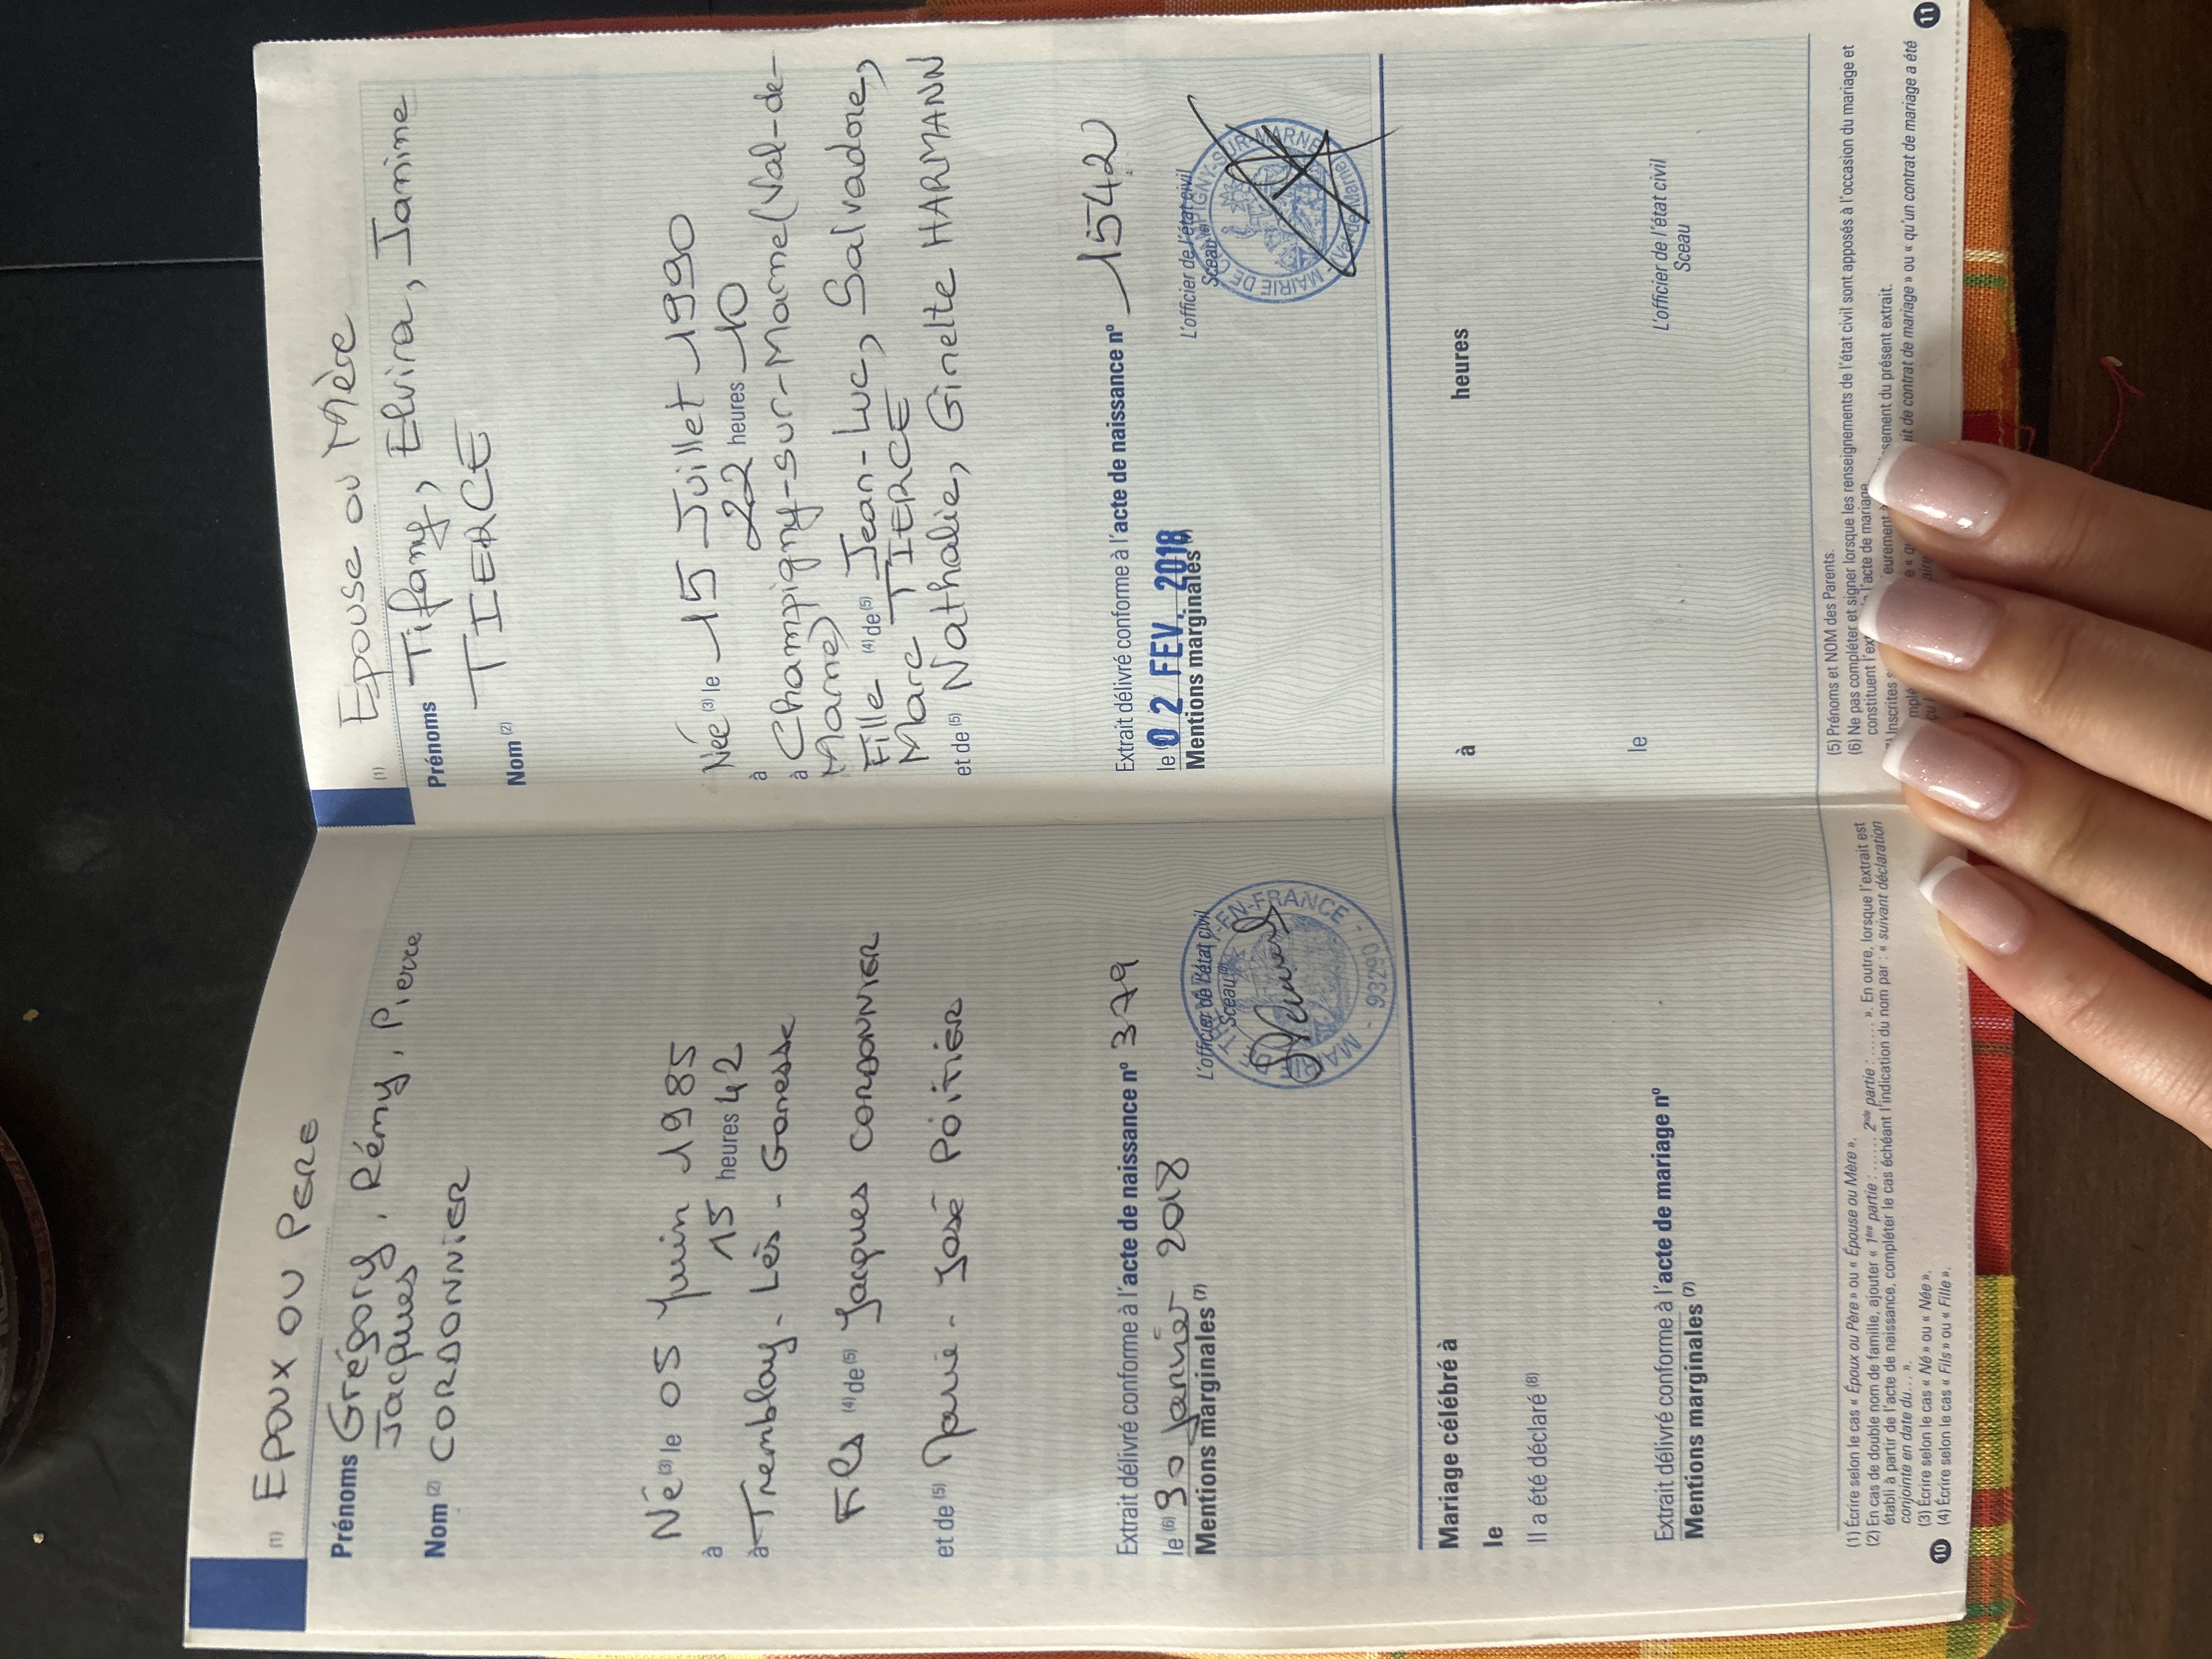 (1) EPOUX OU PERE
Prénoms Grégory, Rémy, Pierre
Jacques
Nom (2) CORDONNIER
Né (3) le 05 Juin 1985
à 15 heures 42
à Tremblay-Lès-Gonesse
Fils (4) de (5) Jacques CORDONNIER
et de (5) Marie-José POITIER
Extrait délivré conforme à l'acte de naissance n° 379
le (6) 30 Janvier 2018
L'officier de l'état civil
Sceau
Mentions marginales (7)
EN-FRANCE
93290
Mariage célébré à
le
Il a été déclaré (8)
Extrait délivré conforme à l'acte de mariage n°
Mentions marginales (7)
(1) Écrire selon le cas « Époux ou Père » ou « Épouse ou Mère ».
(2) En cas de double nom de famille, ajouter « 1ère partie : ...... 2nde partie : ...... ». En outre, lorsque l'extrait est
établi à partir de l'acte de naissance, compléter le cas échéant l'indication du nom par : « suivant déclaration
conjointe en date du... ».
(3) Écrire selon le cas « Né » ou « Née ».
(4) Écrire selon le cas « Fils » ou « Fille ».
10
(1) Epouse ou Mère
Prénoms Tifany, Elvira, Janine
Nom (2) TIERCE
Née (3) le 15 Juillet 1990
à 22 heures 10
à Champigny-sur-Marne (Val-de-
Marne)
Fille (4) de (5) Jean-Luc, Salvadore,
Marc TIERCE
et de (5) Nathalie, Ginette HARMANN
Extrait délivré conforme à l'acte de naissance n° 1542
le 02 FEV. 2018
L'officier de l'état civil
Sceau
Mentions marginales
MAIRIE DE CHAMPIGNY-SUR-MARNE
Val de Marne
à heures
le
L'officier de l'état civil
Sceau
(5) Prénoms et NOM des Parents.
(6) Ne pas compléter et signer lorsque les renseignements de l'état civil sont apposés à l'occasion du mariage et
constituent l'ex l'acte de mariage.
Inscrites eurement à sement du présent extrait.
it de contrat de mariage » ou « qu'un contrat de mariage a été
11